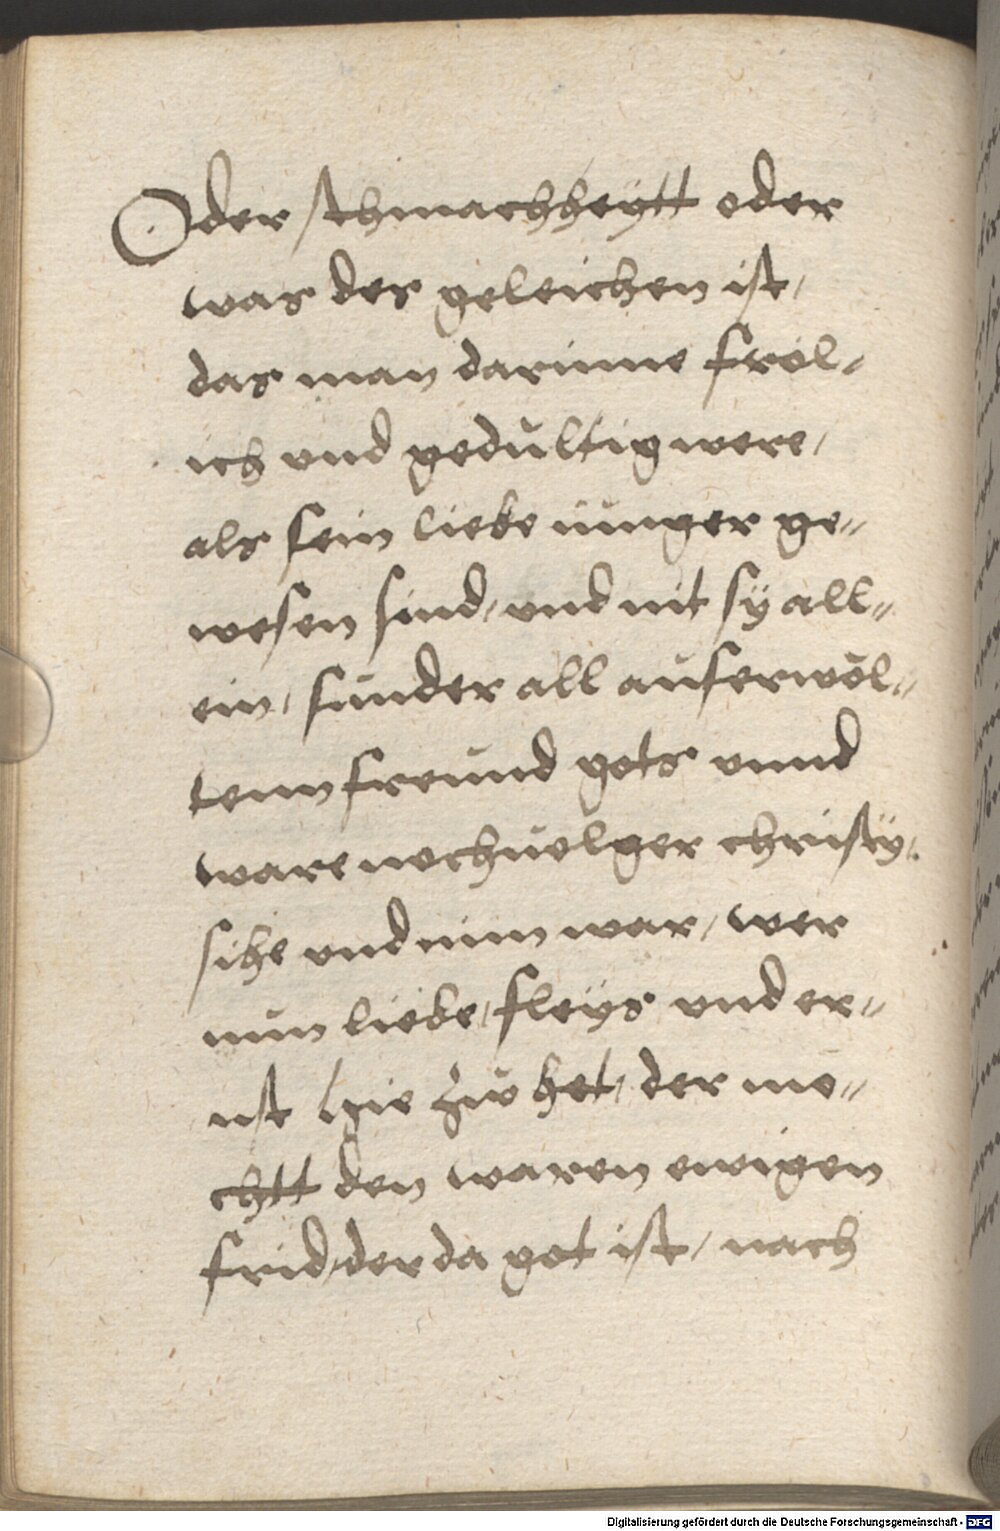 Oder schmachheÿtt oder
was des geleichen ist /
das man darinne frol=
ich vnd gedŭltig were /
als sein liebe iŭnger ge=
wesen sind / vnd nit sÿ all=
ein / sŭnder all aŭserwöl=
tenn freŭnd gots vnnd
ware nochŭolger christÿ /.
sihe vnd nim war / wer
nŭn liebe / fleÿs vnd er=
nst hie zŵ het / der mo=
chtt den waren ewigen
frid / der da got ist / nach
Digitalisierung gefördert durch die Deutsche Forschungsgemeinschaft - DFG